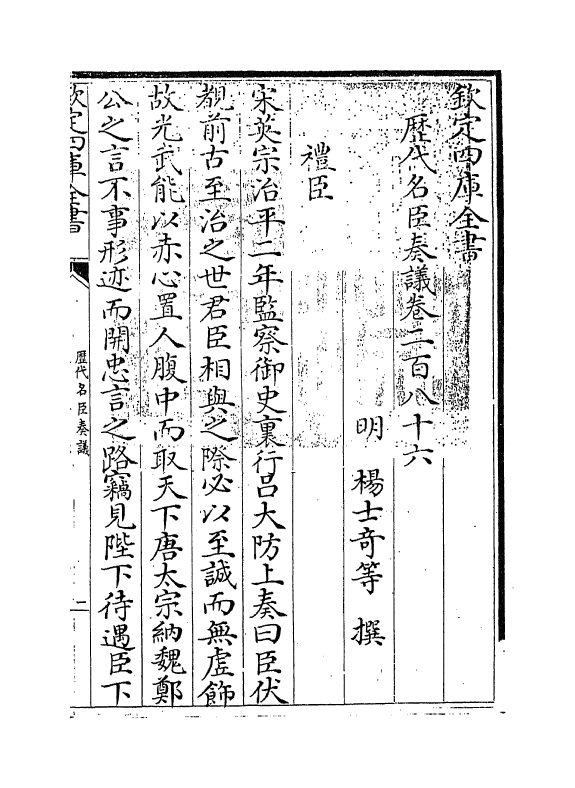 欽定四庫全書
歴代名臣奏議卷二百八十六
明 楊士奇等 撰
禮臣
宋英宗治平二年監察御史裏行吕大防上奏曰臣伏
覩前古至治之世君臣相與之際必以至誠而無虚飾
故光武能以赤心置人腹中而取天下唐太宗納魏鄭
公之言不事形迹而開忠言之路竊見陛下待遇臣下
欽定四庫全書
歴代名臣奏議